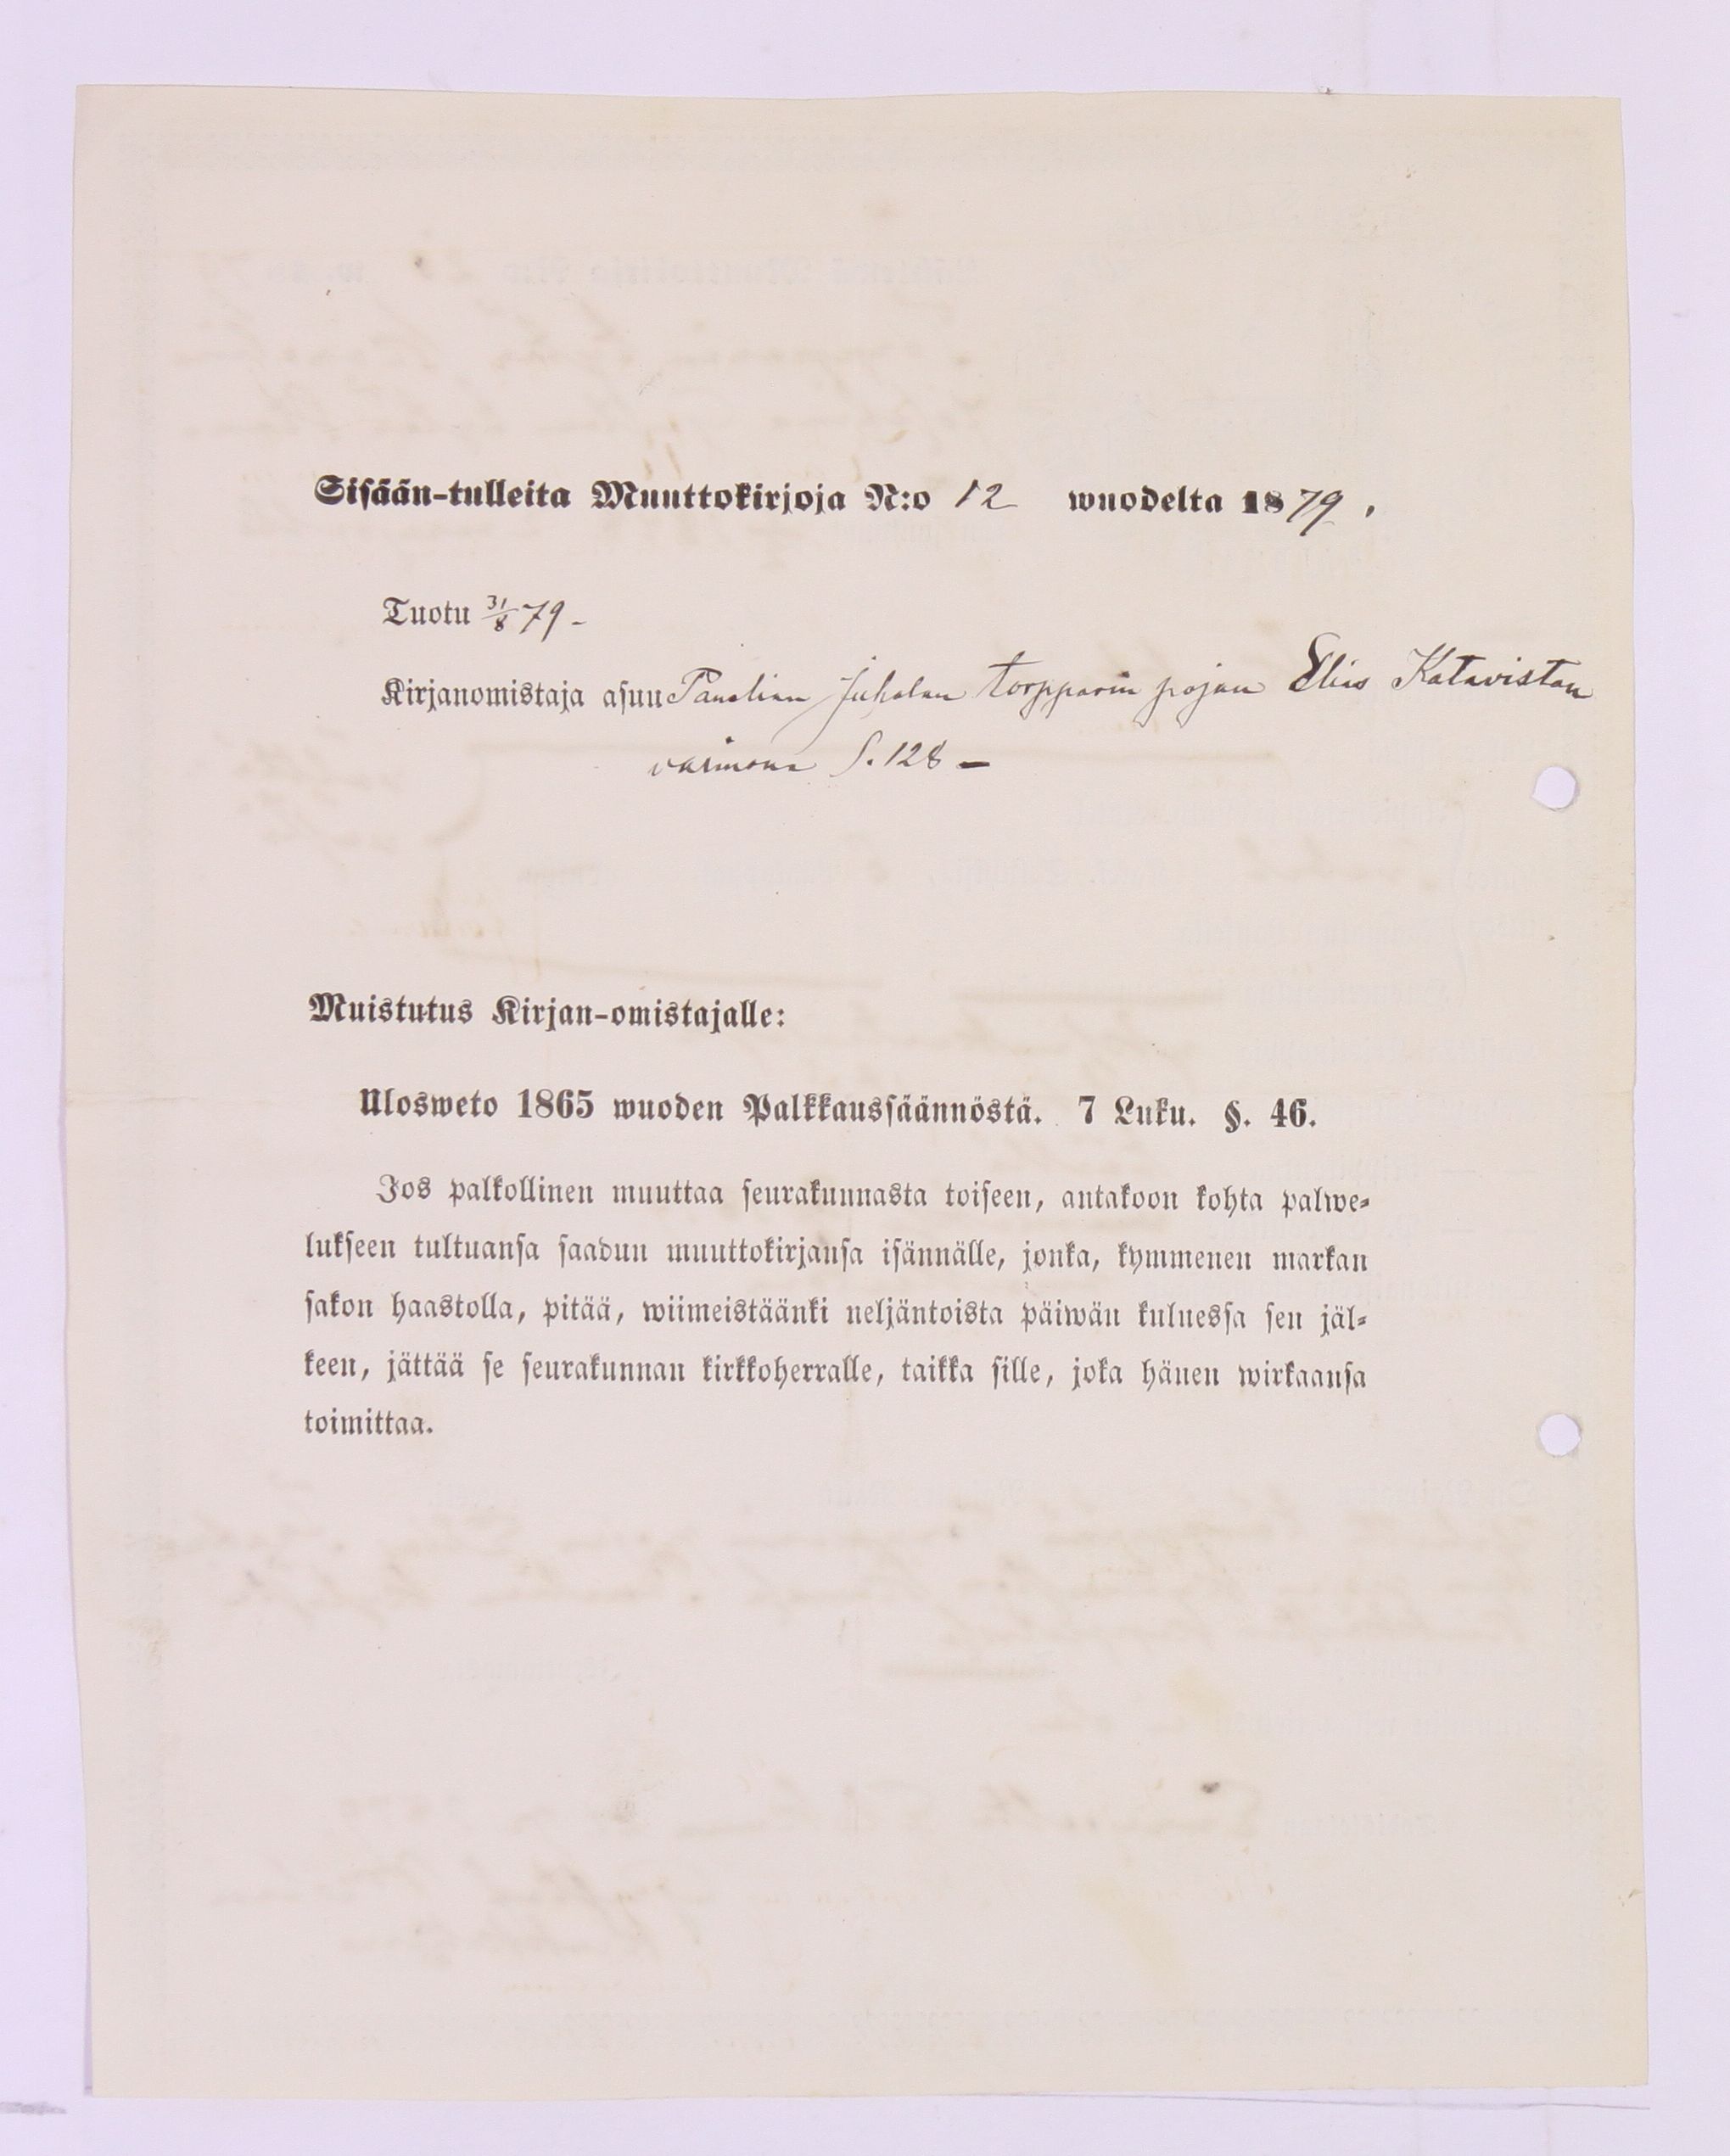 Sisään-tulleita Muuttokirjoja N:o 12 wuodelta 1879.
Tuotu 31/8 79 –
Kirjanomistaja asuu Pauolian Juholan torpparin pojan Elias Kataviston
vaimona S. 128 –
Muistutus Kirjan-omistajalle:
Ulosweto 1865 wuoden Palkkaussäännöstä. 7 Luku. §. 46.
Jos palkollinen muuttaa seurakunnasta toiseen, antakoon kohta palwe-
lukseen tultuansa saadun muuttokirjansa isännälle, jonka, kymmenen markan
sakon haastolla, pitää, wiimeistäänki neljäntoista päiwän kuluessa sen jäl-
keen, jättää se seurakunnan kirkkoherralle, taikka sille, joka hänen wirkaansa
toimittaa.